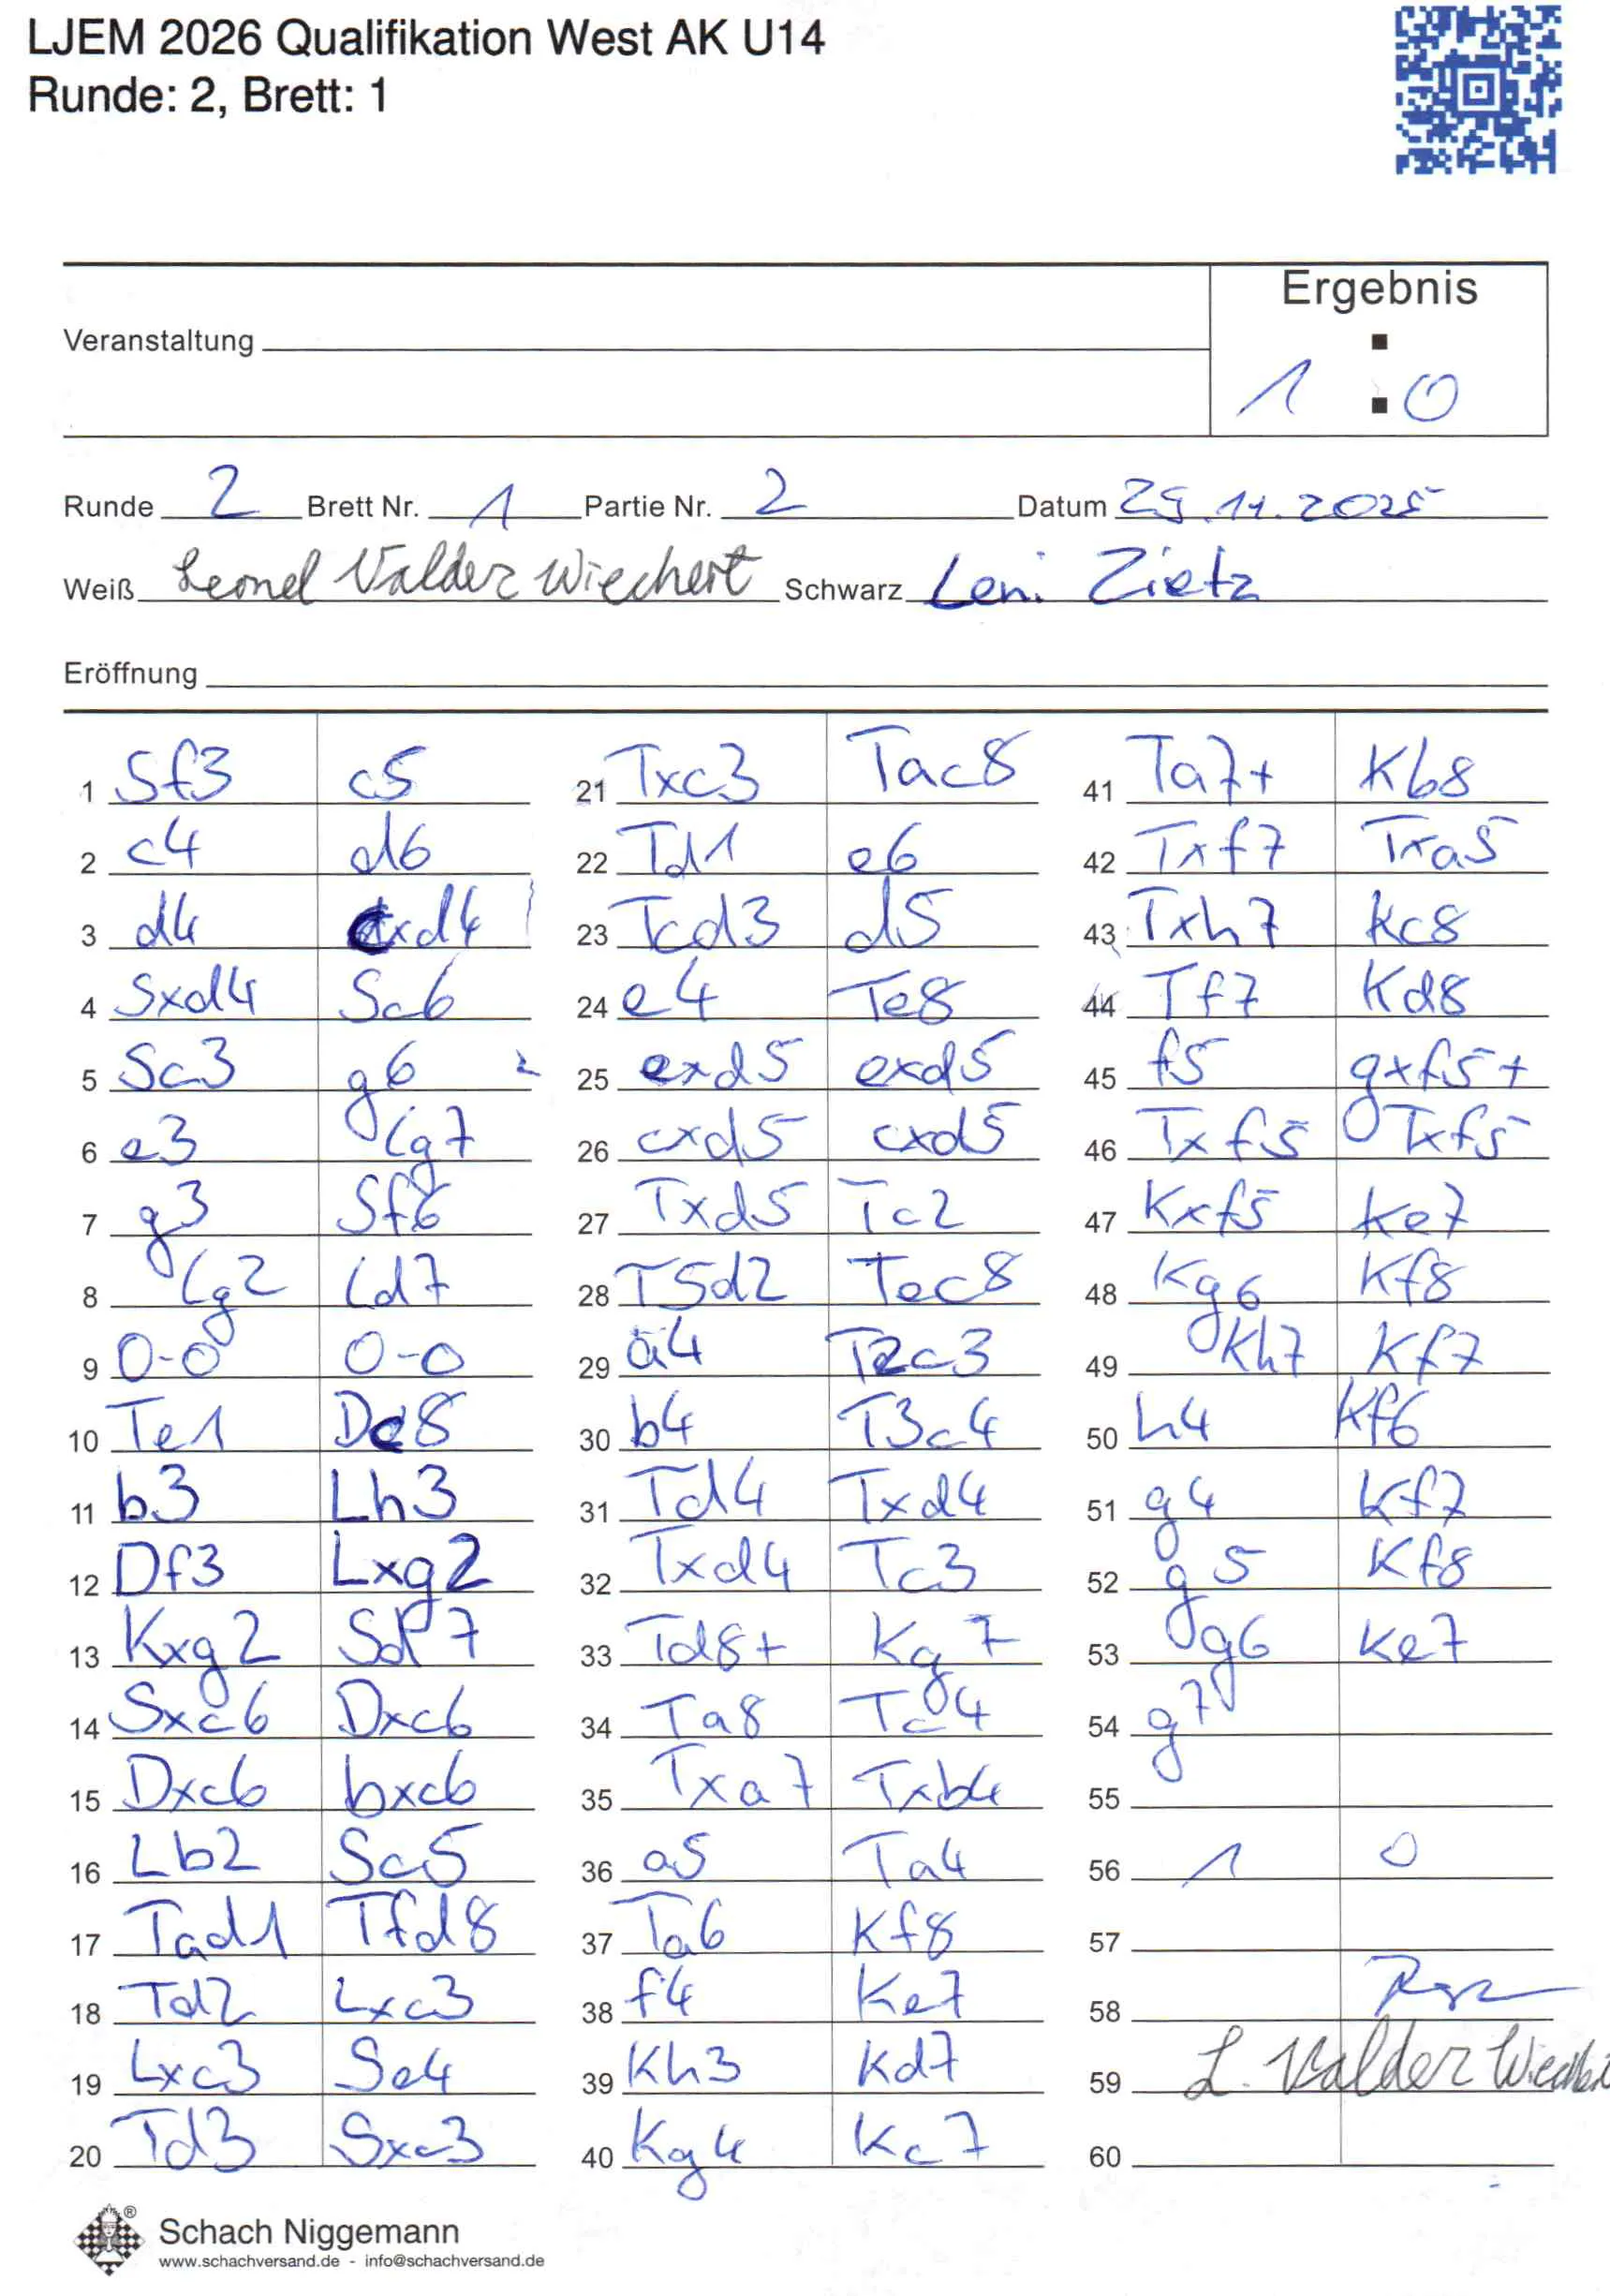 LJEM 2026 Qualifikation West AK U14
Runde: 2, Brett: 1
Ergebnis
Veranstaltung
1 : 0
Runde 2 Brett Nr. 1 Partie Nr. 2 Datum 29.11.2025
Weiß Leonel Valder Wiechert Schwarz Leni Zietz
Eröffnung
1 Sf3 c5
2 c4 d6
3 d4 cxd4
4 Sxd4 Sc6
5 Sc3 g6
6 e3 Lg7
7 g3 Sf6
8 Lg2 Ld7
9 0-0 0-0
10 Te1 Dc8
11 b3 Lh3
12 Df3 Lxg2
13 Kxg2 Sd7
14 Sxc6 Dxc6
15 Dxc6 bxc6
16 Lb2 Sc5
17 Tad1 Tfd8
18 Td2 Lxc3
19 Lxc3 Se4
20 Td3 Sxc3
21 Txc3 Tac8
22 Td1 e6
23 Tcd3 d5
24 e4 Te8
25 exd5 exd5
26 cxd5 cxd5
27 Txd5 Tc2
28 T5d2 Tec8
29 a4 T2c3
30 b4 T3c4
31 Td4 Txd4
32 Txd4 Tc3
33 Td8+ Kg7
34 Ta8 Tc4
35 Txa7 Txb4
36 a5 Ta4
37 Ta6 Kf8
38 f4 Ke7
39 Kh3 Kd7
40 Kg4 Kc7
41 Ta7+ Kb8
42 Txf7 Txa5
43 Txh7 Kc8
44 Tf7 Kd8
45 f5 gxf5+
46 Txf5 Txf5
47 Kxf5 Ke7
48 Kg6 Kf8
49 Kh7 Kf7
50 h4 Kf6
51 g4 Kf7
52 g5 Kf8
53 g6 Ke7
54 g7
55
56 1 0
57
58
59 L. Valder Wiechert
60
Schach Niggemann
www.schachversand.de - info@schachversand.de